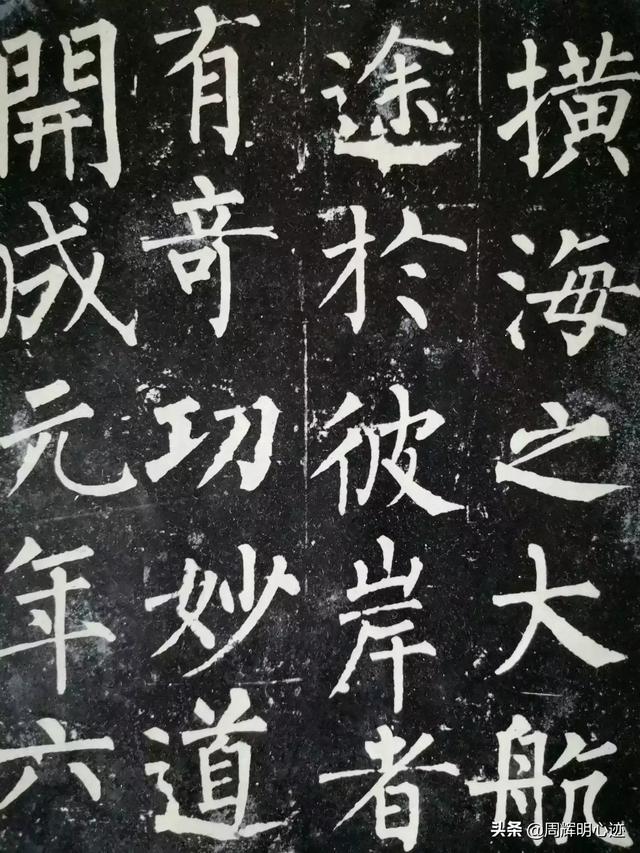 橫海之大航
途於彼岸者
有奇功妙道
開成元年六
头条 @周辉明心迹